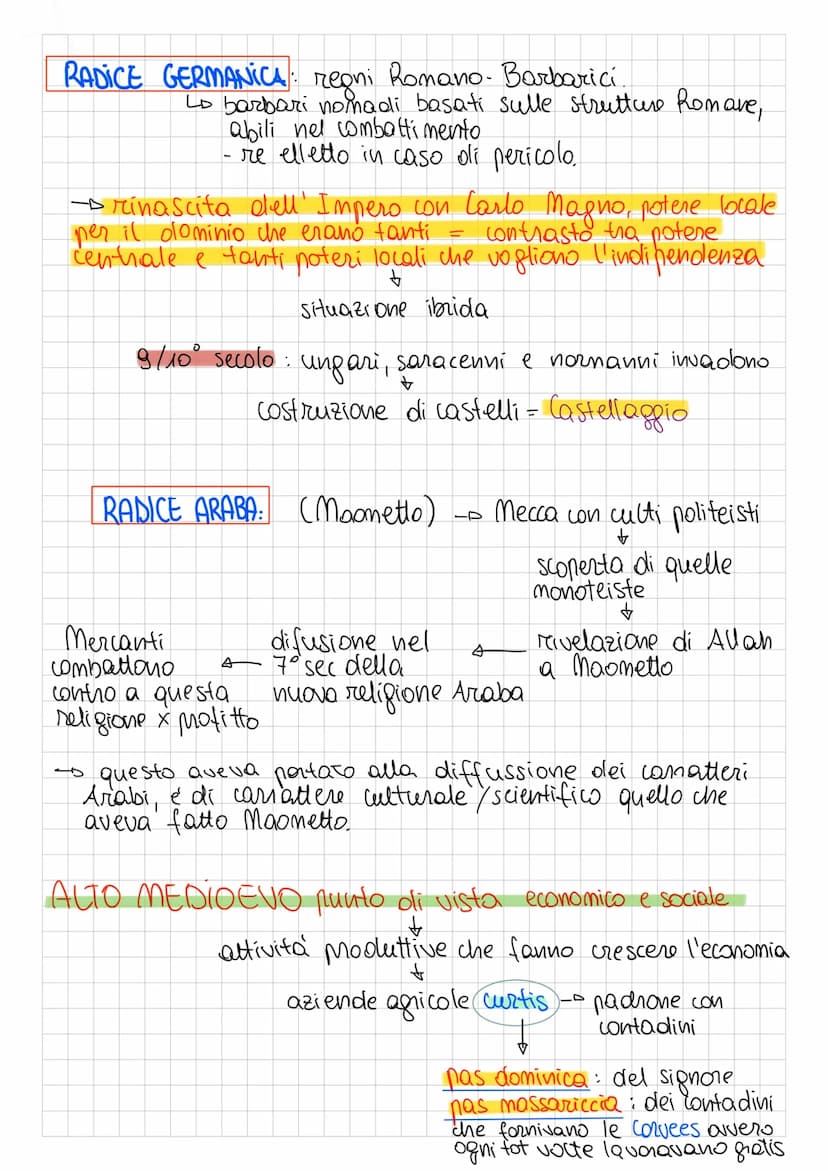 RADICE GERMANICA: regni Romano-Barbarici
↳ barbari nomadi basati sulle strutture Romane,
abili nel combattimento
- re elletto in caso di pericolo.
→ rinascita dell'Impero con Carlo Magno, potere locale
per il dominio che erano tanti = contrasto tra potere
centrale e tanti poteri locali che vogliono l'indipendenza
↓
situazione ibrida
9/10° secolo: ungari, saracenni e normanni invadono
↓
costruzione di castelli = Castellaggio
RADICE ARABA: (Maometto) → Mecca con culti politeisti
↓
scoperta di quelle
monoteiste
↓
rivelazione di Allah
a Maometto
←
difusione nel
7° sec della
nuova religione Araba
←
Mercanti
combattono
contro a questa
religione x profitto
→ questo aveva portato alla diffussione dei caratteri
Arabi, é di carattere culturale/scientifico quello che
aveva fatto Maometto.
ALTO MEDIOEVO punto di vista economico e sociale
↓
attività produttive che fanno crescere l'economia
↓
aziende agricole curtis → padrone con
contadini
↓
pas dominica: del signore
pas massariccia: dei contadini
che fornivano le corvees ovvero
ogni tot volte lavoravano gratis